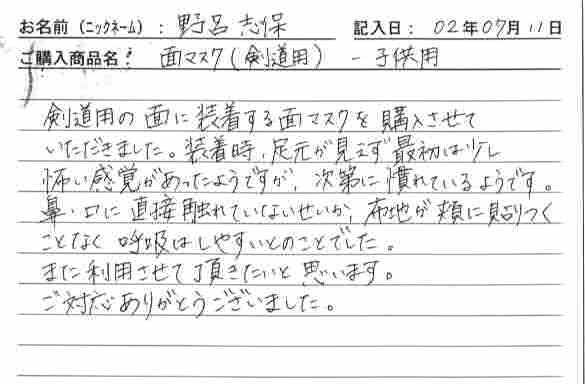 お名前(ニックネーム):野呂 志保 記入日:02年07月11日
ご購入商品名:面マスク(剣道用) - 子供用
剣道用の面に装着する面マスクを購入させて
いただきました。装着時、足元が見えず最初は少し
怖い感覚があったようですが、次第に慣れているようです。
鼻・口に直接触れていないせいか、布地が頬に貼りつく
ことなく呼吸はしやすいとのことでした。
また利用させて頂きたいと思います。
ご対応ありがとうございました。